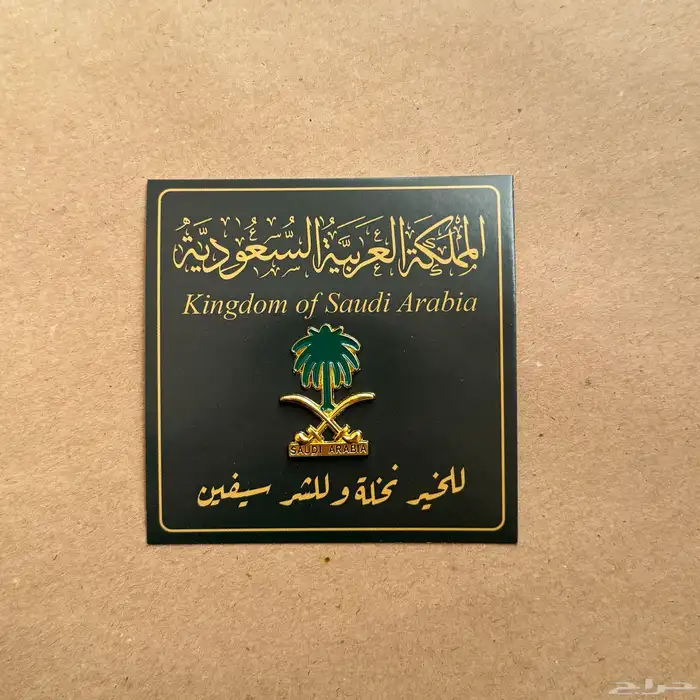 المملكة العربية السعودية
Kingdom of Saudi Arabia
SAUDI ARABIA
للخير نخلة وللشر سيفين
حراج